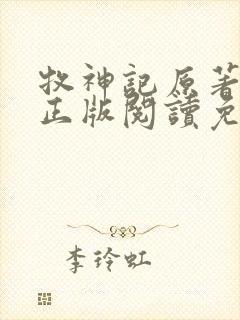 牧神記原著
正版閱讀免
李玲虹